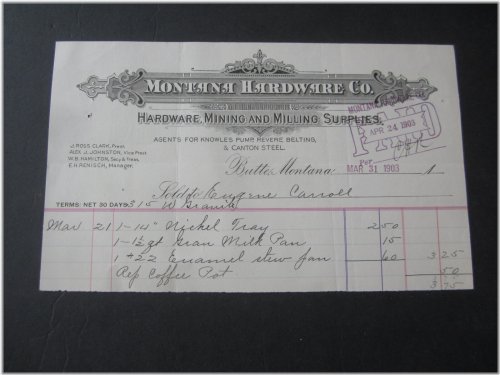 MONTANA HARDWARE CO.
HARDWARE, MINING AND MILLING SUPPLIES,
AGENTS FOR KNOWLES PUMP, REVERE BELTING,
& CANTON STEEL
J. ROSS CLARK, Prest.
ALEX. J. JOHNSTON, Vice Prest.
W.B. HAMILTON, Secy & Treas.
E.H. RENISCH, Manager.
MONTANA HARDWARE CO.
PAID
APR 24 1903
Per
Butte, Montana, MAR 31 1903 1
Sold to Eugene Carroll
TERMS: NET 30 DAYS. 315 W Granite
Mar 21 1-14" Nickel Tray 2 50
1-1½ qt Gran Milk Pan 15
1 #22 Enamel stew pan 60 3 25
Rep Coffee Pot 50
3 75